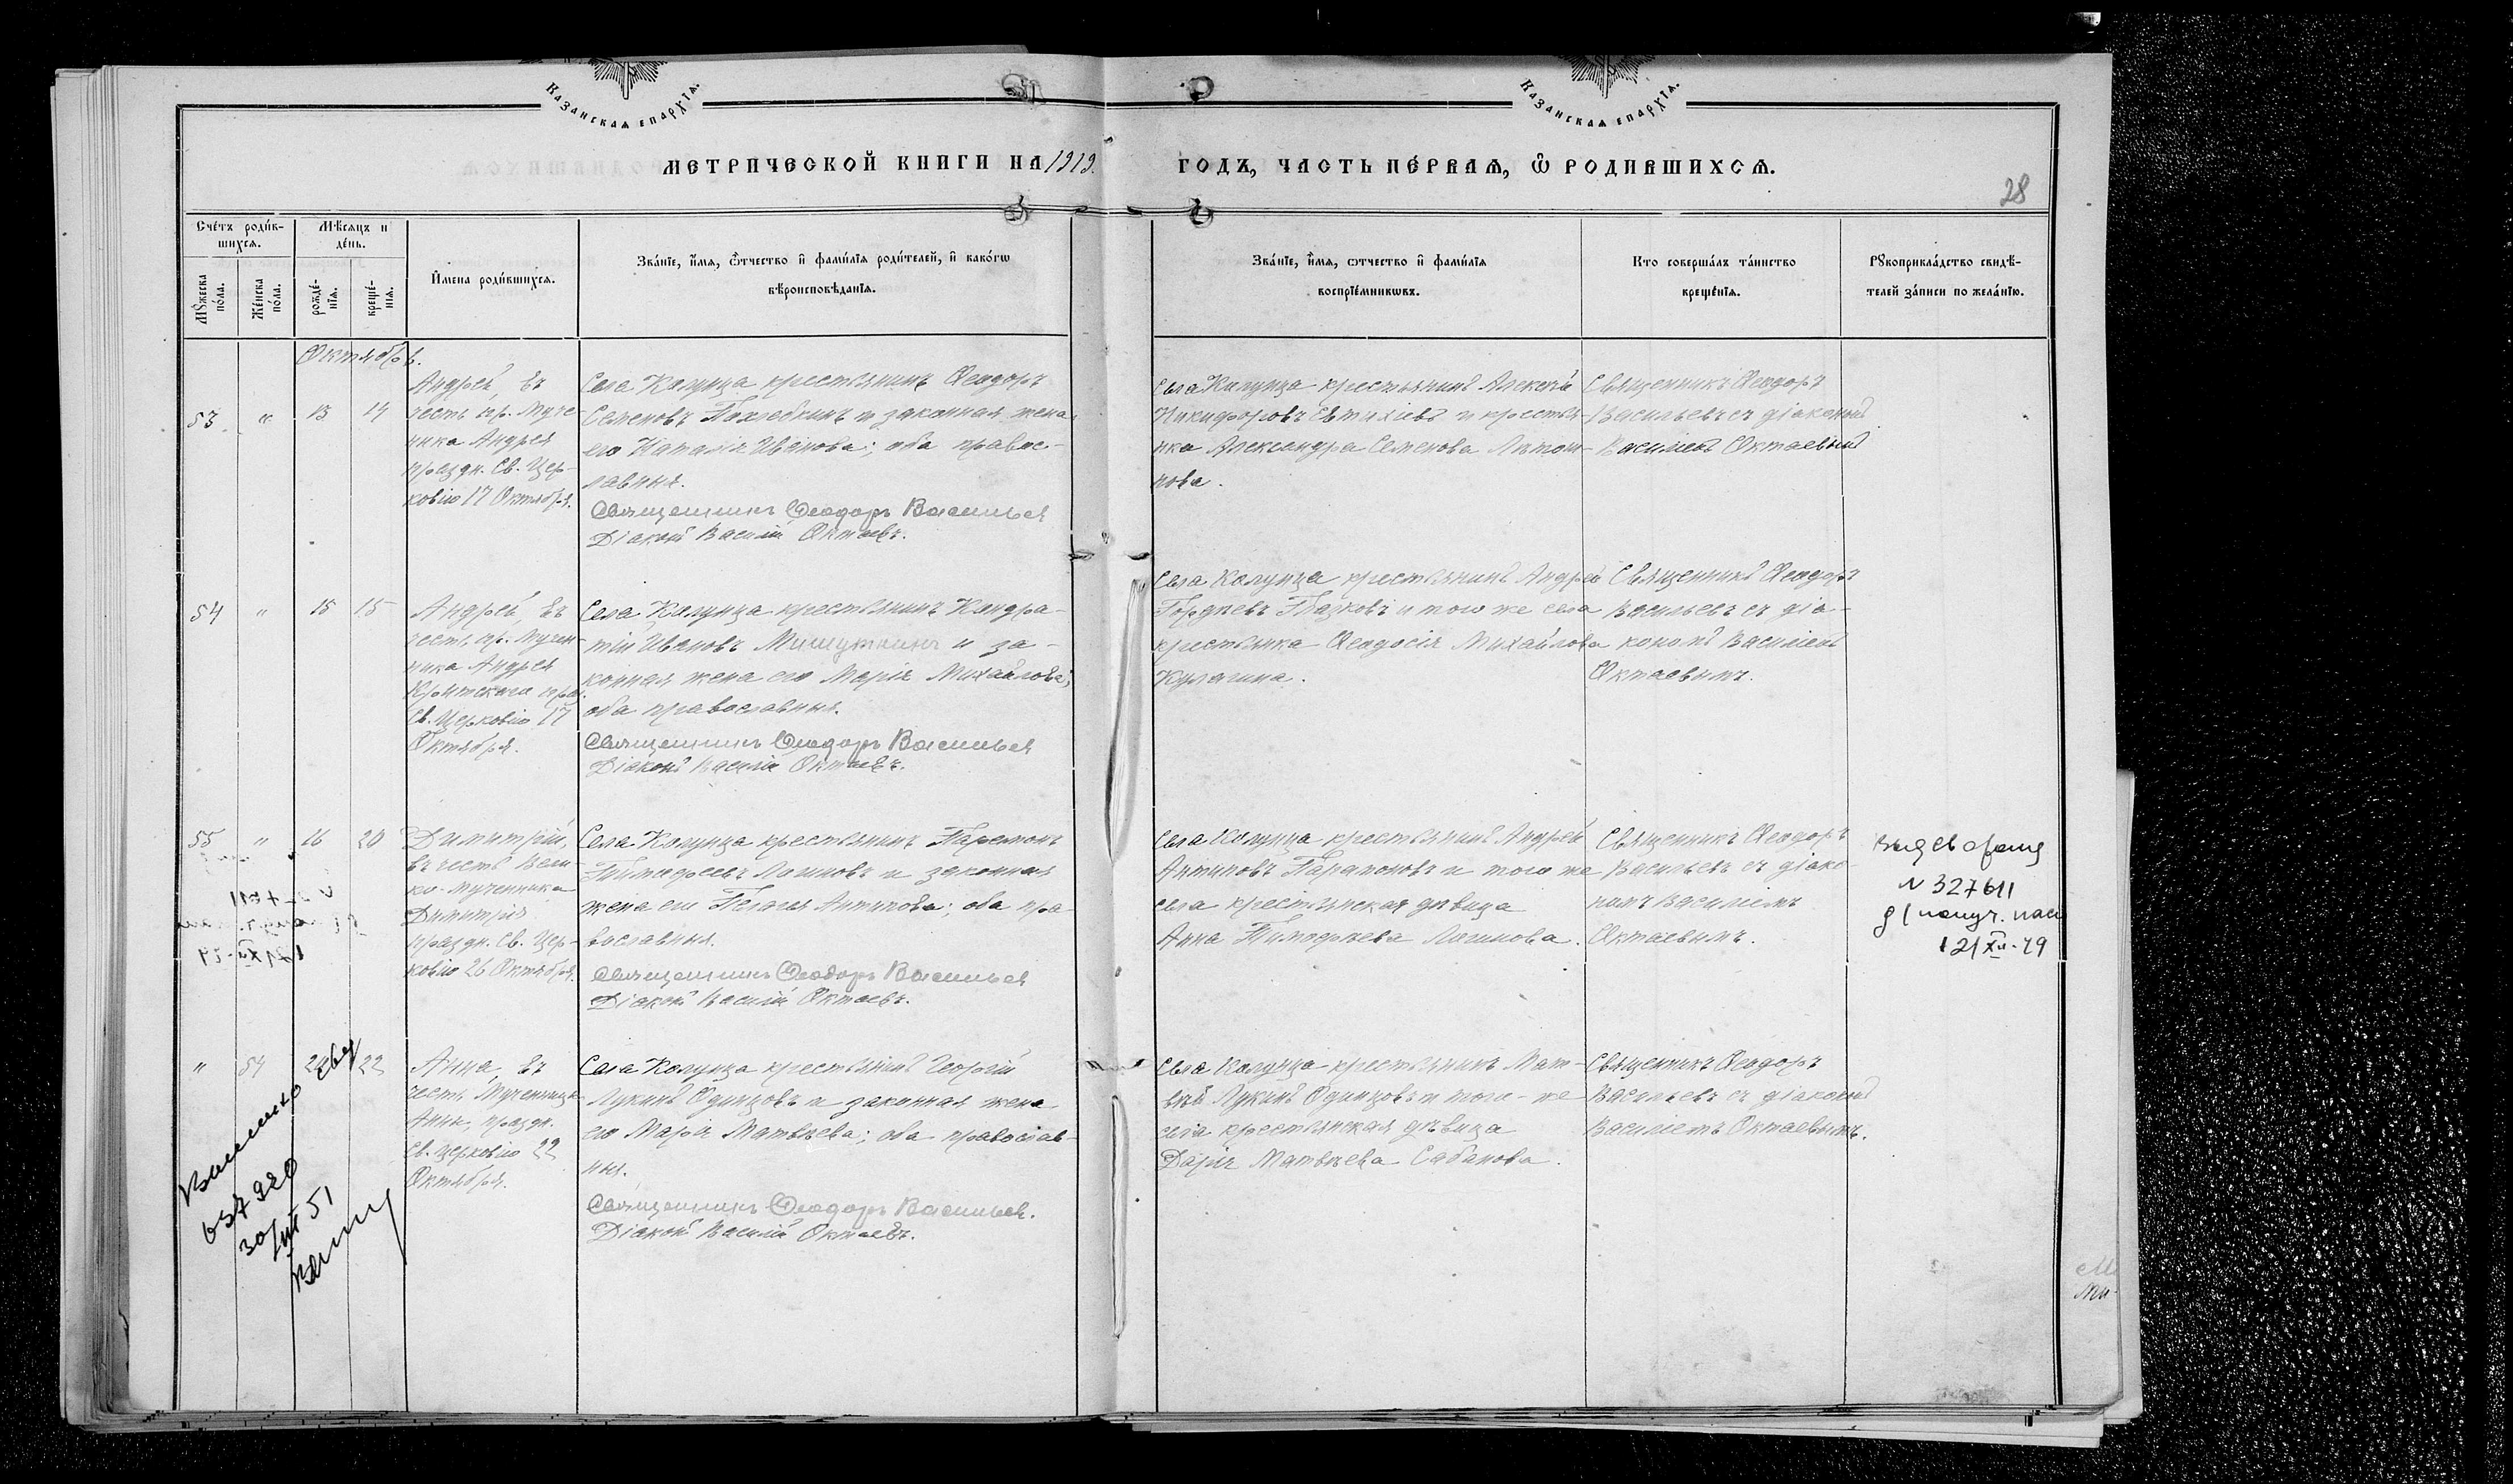 Казанская епархїя.
Казанская епархїя.
МЕТРИЧЕСКОЙ КНИГИ НА 1919.
ГОДЪ, ЧАСТЬ ПЕ́РВАЯ, Ѽ РОДИВШИХСЯ.
28
Сче́тъ роди́в-
шихся.
Мѣсяцъ и
де́нь.
Мꙋ́жеска по́ла.
Же́нска по́ла.
рожде́-нїя.
креще́-нїя.
И҆мена роди́вшихся.
Зва́нїе, и҆́мя, ѻ҆́тчество и҆ фами́лїя роди́телей, и҆ како́гѡ
вѣроисповѣ́данїя.
Зва́нїе, и҆́мя, ѻтчество и҆ фами́лїя
воспрїе́мникѡвъ.
Кто соверша́лъ та́инство
креще́нїя.
Рꙋкоприкла́дство свидѣ́-
телей за́писи по жела́нїю.
Октябрь.
53.
"
13
14
Андрей, въ
честь пр. Муче-
ника Андрея
праздн. Св. Цер-
ковію 17 Октября.
Села Колунца крестьянинъ Ѳеодоръ
Семеновъ Похлебкинъ и законная жена
его Наталія Иванова; оба правос-
лавныя.
Священникъ Ѳеодоръ Васильев
Діаконъ Василій Октаевъ.
Села Колунца крестьянинъ Алексѣй
Никифоровъ Евтихіевъ и крестья-
нка Александра Семенова
нова.
Священникъ Ѳеодоръ
Васильевъ съ діакономъ
Василіемъ Октаевымъ
54
"
15
15
Андрей, въ
честь пр. Мучен-
ника Андрея
Критскаго
Св. Церковію 17
Октября.
Села Колунца крестьянинъ Кондра-
тій Ивановъ Мишуткинъ и за-
конная жена его Марія Михайлова;
оба православныя.
Священникъ Ѳеодоръ Васильев
Діаконъ Василій Октаевъ.
Села Колунца крестьянинъ Андрей
Гордѣевъ Глазковъ и того же села
крестьянка Ѳеодосія Михайлова
Кулагина.
Священникъ Ѳеодоръ
Васильевъ съ діа-
кономъ Василіемъ
Октаевымъ.
55
"
16
20
Димитрій,
въ честь Вели-
ко-мученика
Димитрія
праздн. Св. Цер-
ковію 26 Октября.
Села Колунца крестьянинъ Парамонъ
Тимофеевъ Логиновъ и законная
жена его Пелагея Антипова; оба пра
вославныя.
Священникъ Ѳеодоръ Васильев
Діаконъ Василій Октаевъ.
Села Колунца крестьянинъ Андрей
Антиповъ Парамоновъ и того же
села крестьянская дѣвица
Анна Тимофѣева Логинова.
Священникъ Ѳеодоръ
Васильевъ съ діако-
номъ Василіемъ
Октаевымъ.
N 327611
д/получ. пасп
121 XII-79
"
54
22
Анна, въ
честь Мученицы
Анны, праздн.
Св. Церковію 22
Октября.
Села Колунца крестьянинъ Георгій
Лукинъ Одинцовъ и законная жена
его Марія Матвѣева; оба православ-
ныя.
Священникъ Ѳеодоръ Васильев.
Діаконъ Василій Октаевъ.
Села Колунца крестьянинъ Мат-
вѣй Лукинъ Одинцовъ и того-же
села крестьянская дѣвица
Дарія Матвѣева Сабанова.
Священникъ Ѳеодоръ
Васильевъ съ діакономъ
Василіемъ Октаевымъ.
637920
30/III 51